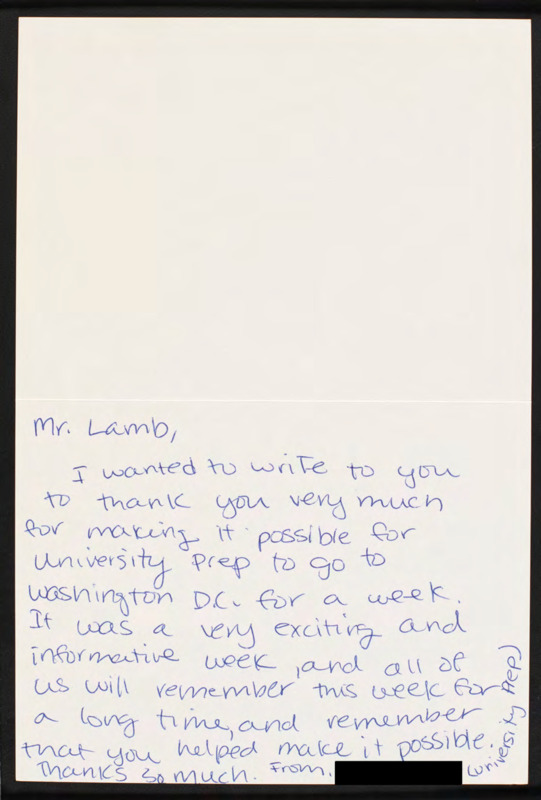 Mr. Lamb,
I wanted to write to you
to thank you very much
for making it possible for
University Prep to go to
washington D.C. for a week.
It was a very exciting and
informative week, and all of
us will remember this week for
a long time, and remember
that you helped make it possible.
Thanks so much. From,
(University Prep)